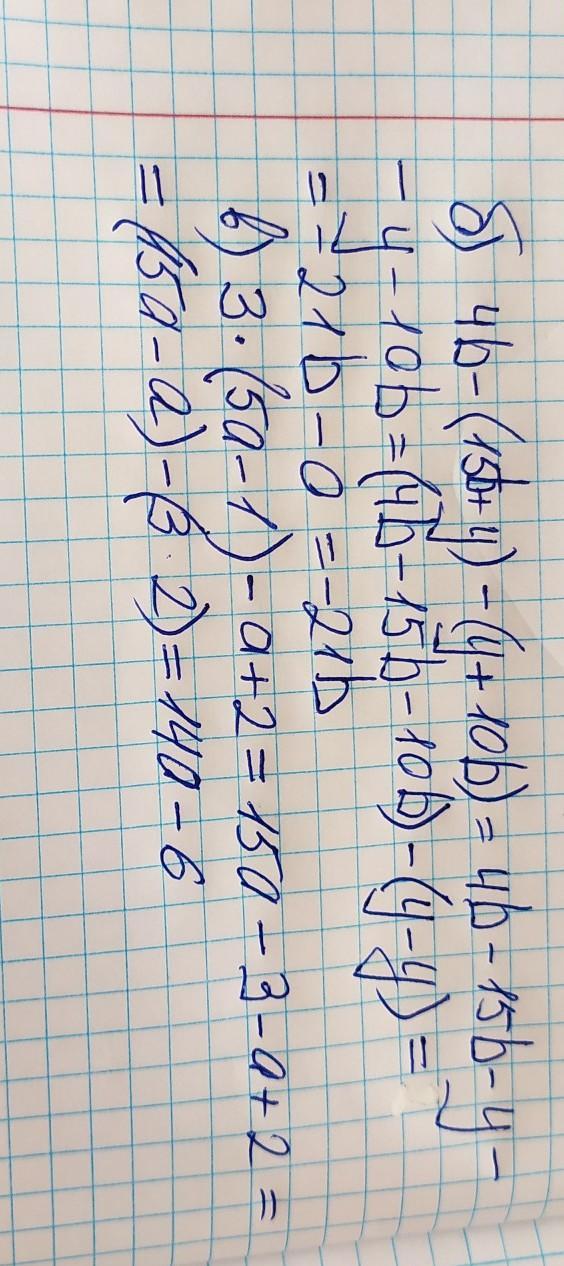 б) 4b-(15b+y)-(y+10b)=4b-15b-y-
-y-10b=(4b-15b-10b)-(y-y)=
=-21b-0=-21b
в) 3·(5a-1)-a+2=15a-3-a+2=
=(15a-a)-(3·2)=14a-6